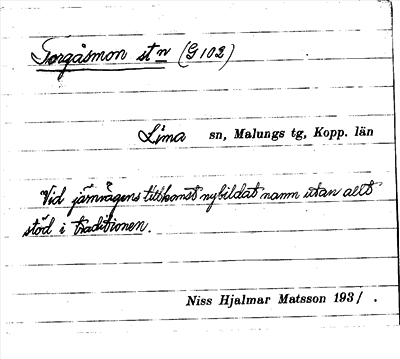 Torgåsmon st n (G 102)
Lima sn, Malungs tg, Kopp. län
Vid järnvägens tillkomst nybildat namn utan allt
stöd i traditionen.
Niss Hjalmar Matsson 1931.